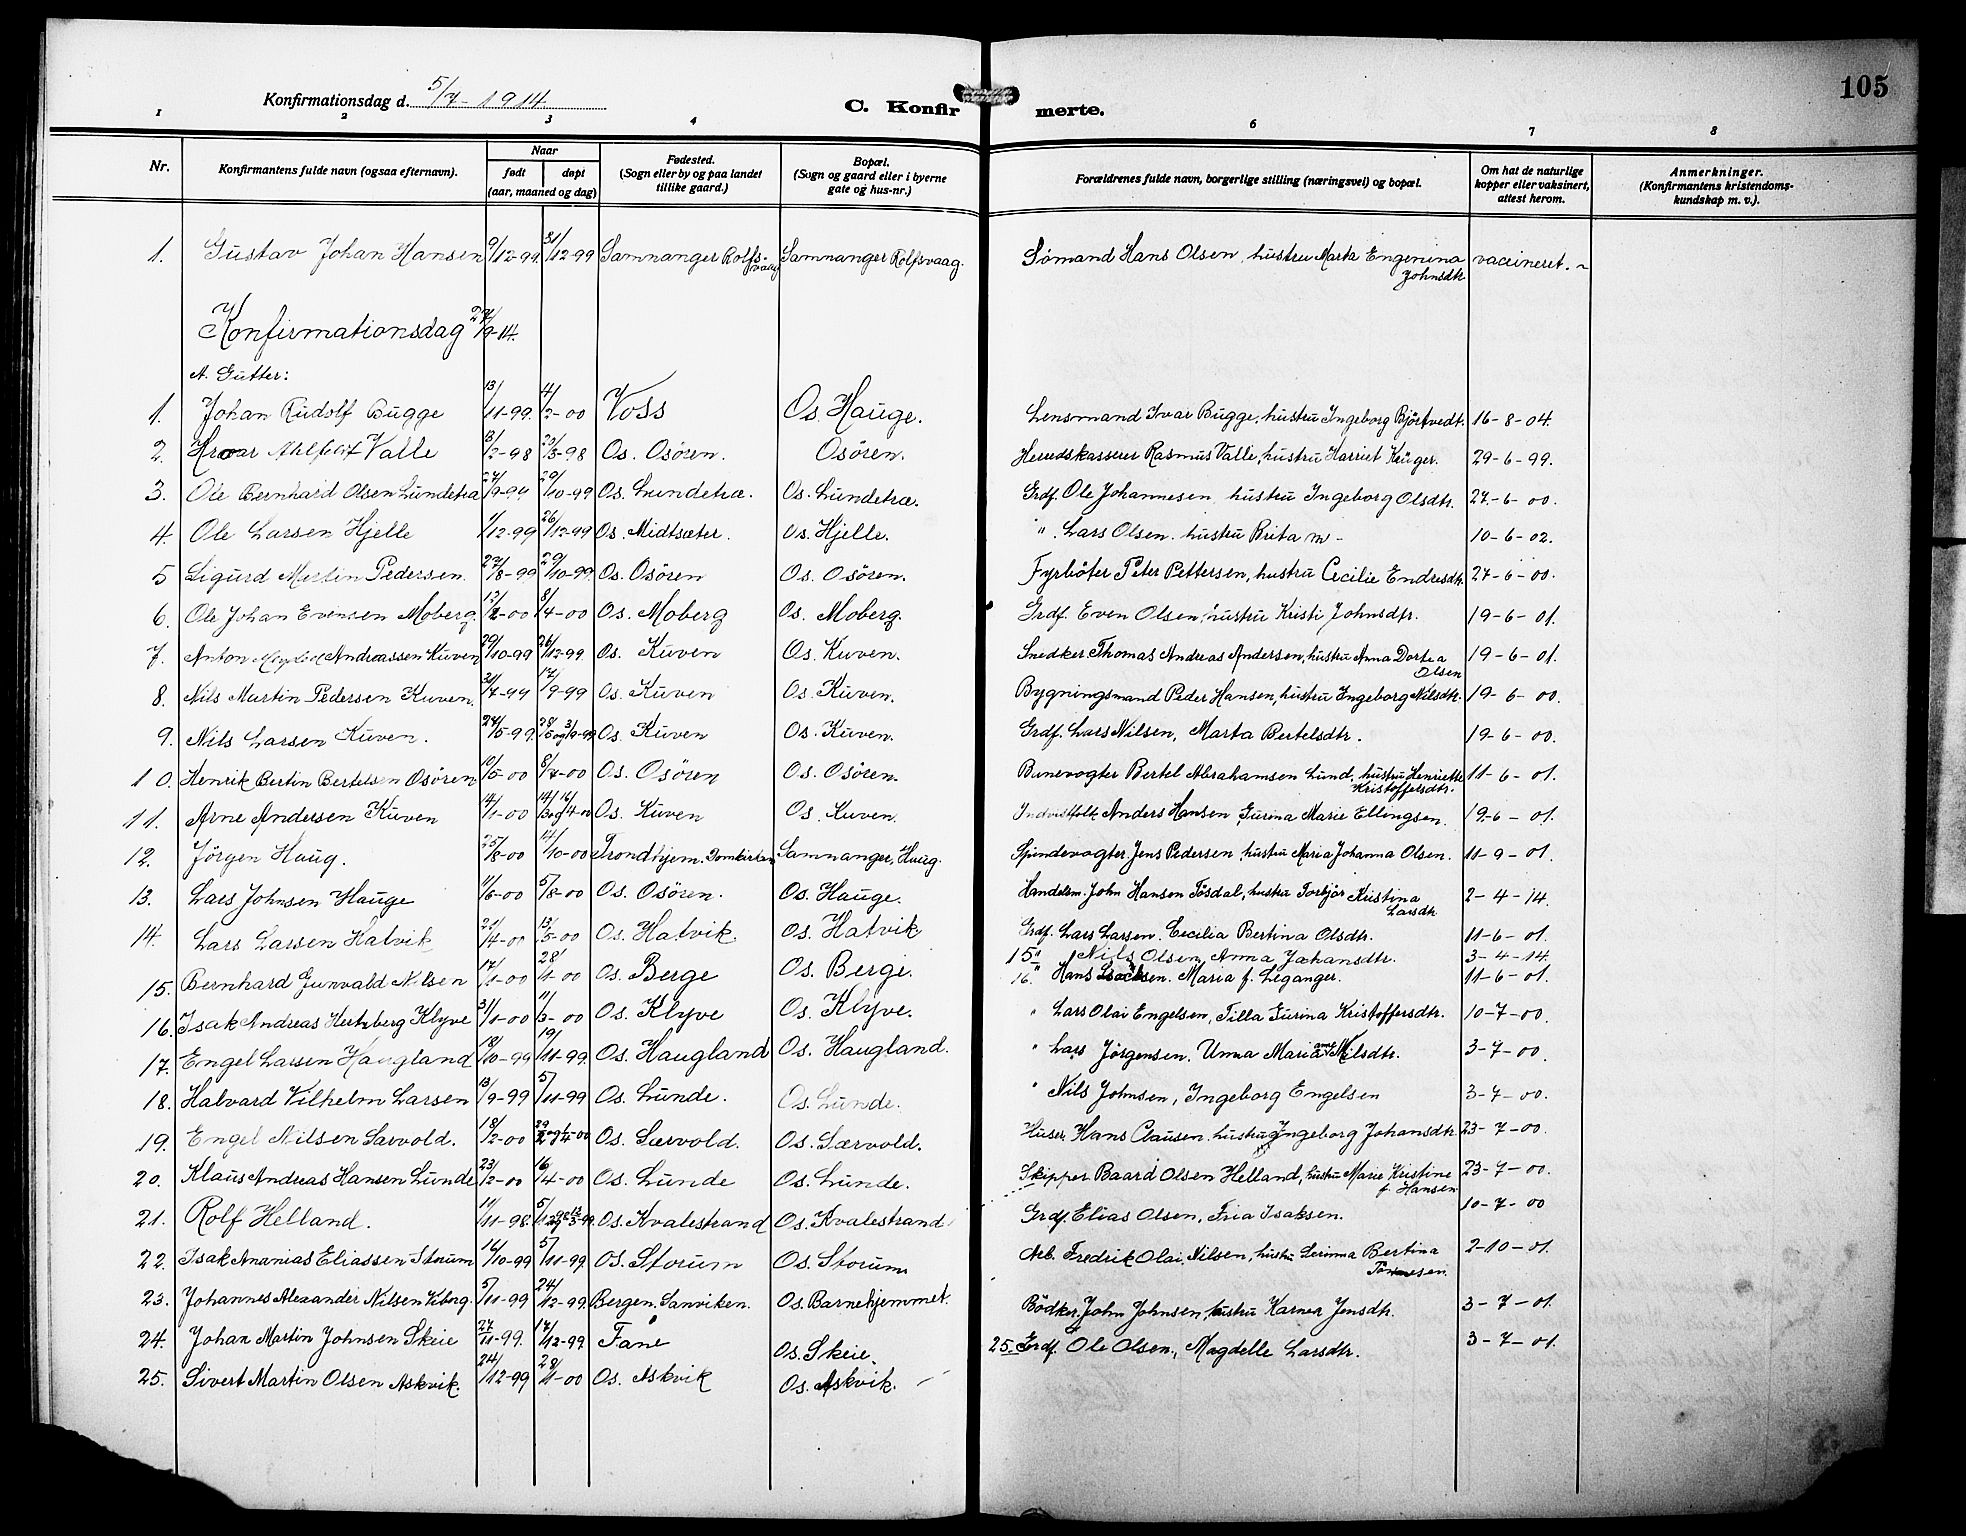 105
Konfirmationsdag d. 5/7-1914
C. Konfir merte.
1 2 3 4 6 7 8
Nr. Konfirmantens fulde navn (ogsaa efternavn). Naar født døpt (aar, maaned og dag) Fødested. (Sogn eller by og paa landet tillike gaard.) Bopæl. (Sogn og gaard eller i byerne gate og hus-nr.) Forældrenes fulde navn, borgerlige stilling (næringsvei) og bopæl. Om hat de naturlige kopper eller vaksinert, attest herom. Anmerkninger. (Konfirmantens kristendoms-kundskap m. v.).
1. Gustav Johan Hansen 9/12-99 31/12-99 Samnanger Rolfsvaag Samnanger Rolfsvaag. Sømand Hans Olsen, hustru Marta Engenina Johnsdtr vaccineret. ~
Konfirmationsdag 27/9-14.
A. Gutter:
1. Johan Rudolf Bugge 13/11-99. 4/2-00 Voss Os. Hauge. Lensmand Ivar Bugge, hustru Ingeborg Björtvedt. 16-8-04.
2. Valle 13/2-98 20/3-98 Os. Osören. Osören. Herredskasserer Rasmus Valle, hustru Harriet Krüger. 29-6-99.
3. Ole Bernhard Olsen Lundetræ 27/9-99 29/10-99 Os. Lundetræ. Os. Lundetræ. Grdf. Ole Johannesen, hustru Ingeborg Olsdtr. 27-6-00.
4. Ole Larsen Hjelle 1/12-99 26/12-99 Os. Midtsæter. Os. Hjelle. " Lars Olsen, hustru Brita m- 10-6-02.
5 Sigurd Martin Pedersen. 27/8-99 29/10-99. Os. Osören Os. Osören. Fyrböter Peter Pettersen, hustru Cecilie Endresdtr. 27-6-00.
6. Ole Johan Evensen Moberg. 12/2-00 8/4-00 Os. Moberg Os. Moberg. Grdf. Even Olsen, hustru Kristi Johnsdtr. 19-6-01.
7. Anton Andreassen Kuven 29/10-99 26/12-99. Os. Kuven Os. Kuven. Snedker Thomas Andreas Andersen, hustru Anna Dortea Olsen 19-6-01.
8. Nils Martin Pedersen Kuven. 31/7-99 17/9-99 Os. Kuven Os. Kuven. Bygningsmand Peder Hansen, hustru Engeborg Nilsdtr. 19-6-00.
9. Nils Larsen Kuven. 24/5-99. 28/5 og 3/9-99 Os. Kuven Os. Kuven. Grdf. Lars Nilsen, Marta Bertelsdtr. 19-6-00.
10. Henrik Bertin Bertelsen Osören 10/5-00 8/7-00 Os. Osören Os. Osören. Banevogter Bertel Abrahamsen Lund, hustru Henriette Kristoffersdtr. 11-6-01.
11. Arne Andersen Kuven 14/1-00 Os. Kuven Os. Kuven. Anders Hansen, Gurina Marie Ellingsen. 19-6-01.
12. Jörgen Haug. 25/8-00 14/10-00 Trondhjem. Domkirken Samnanger, Haug. Jens Pedersen, hustru Maria Johanna Olsen. 11-9-01.
13. Lars Johnsen Hauge 11/6-00 5/8-00 Os. Osören. Os. Hauge. Handelsm. John Hansen Tösdal, hustru Torbjör Kristina Larsdtr 2-4-14.
14. Lars Larsen Hatvik 21/4-00 13/5-00 Os. Hatvik Os. Hatvik Grdf. Lars Larsen. Cecilia Bertina Olsdtr. 11-6-01.
15. Bernhard Gunvald Nilsen 17/1-00 28/1-00 Os. Berge Os. Berge. 15 " Nils Olsen, Anna Johansdtr. 3-4-14.
16. Isak Andreas Hertzberg Klyve 31/1-00 11/3-00 Os. Klyve Os. Klyve. 16. " Hans Isaksen. Maria f. Leganger. 11-6-01.
17. Engel Larsen Haugland 18/10-99 19/11-99. Os. Haugland Os. Haugland. " Lars Olai Engelsen, Tilla Gurina Kristoffersdtr. 10-7-00.
18. Halvard Vilhelm Larsen 13/9-99 5/11-99 Os. Lunde. Os. Lunde. " Lars Jörgensen. Unna Maria Nilsdtr. 3-7-00.
19. Engel Nilsen Særvold. 18/2-00 Os. Særvold. Os. Særvold. " Nils Johnsen, Ingeborg Engelsen 3-7-00.
20. Klaus Andreas Hansen Lunde 23/2-00 16/4-00 Os. Lunde Os. Lunde. Huser, Hans Clausen, hustru Ingeborg Johansdtr. 23-7-00.
21. Rolf Helland. 11/11-98. Os. Kvalestrand Os. Kvalestrand Skipper Baard Olsen Helland, hustru Marie Kristine f. Hansen 23-7-00.
22. Isak Ananias Eliassen Storum 16/10-99 5/11-99. Os. Storum Os. Storum Grdf. Elias Olsen, Fria Isaksen. 10-7-00
23. Johannes Alexander Nilsen Viberg. 5/11-99 24/12-99. Bergen. Sanviken. Os. Barnehjemmet. Arb. Fredrik Olai Nilsen, hustru Bertina 2-10-01.
24. Johan Martin Johnsen Skeie 27/11-99. 17/12-99 Fane Os. Skeie. Bödker John Johnsen, hustru Karner Jensdtr. 3-7-01.
25. Sivert Martin Olsen Askvik. 24/12-99 28/1-00 Os. Askvik Os. Askvik. 25. Grdf. Ole Olsen, Magdelle Larsdtr. 3-7-01.